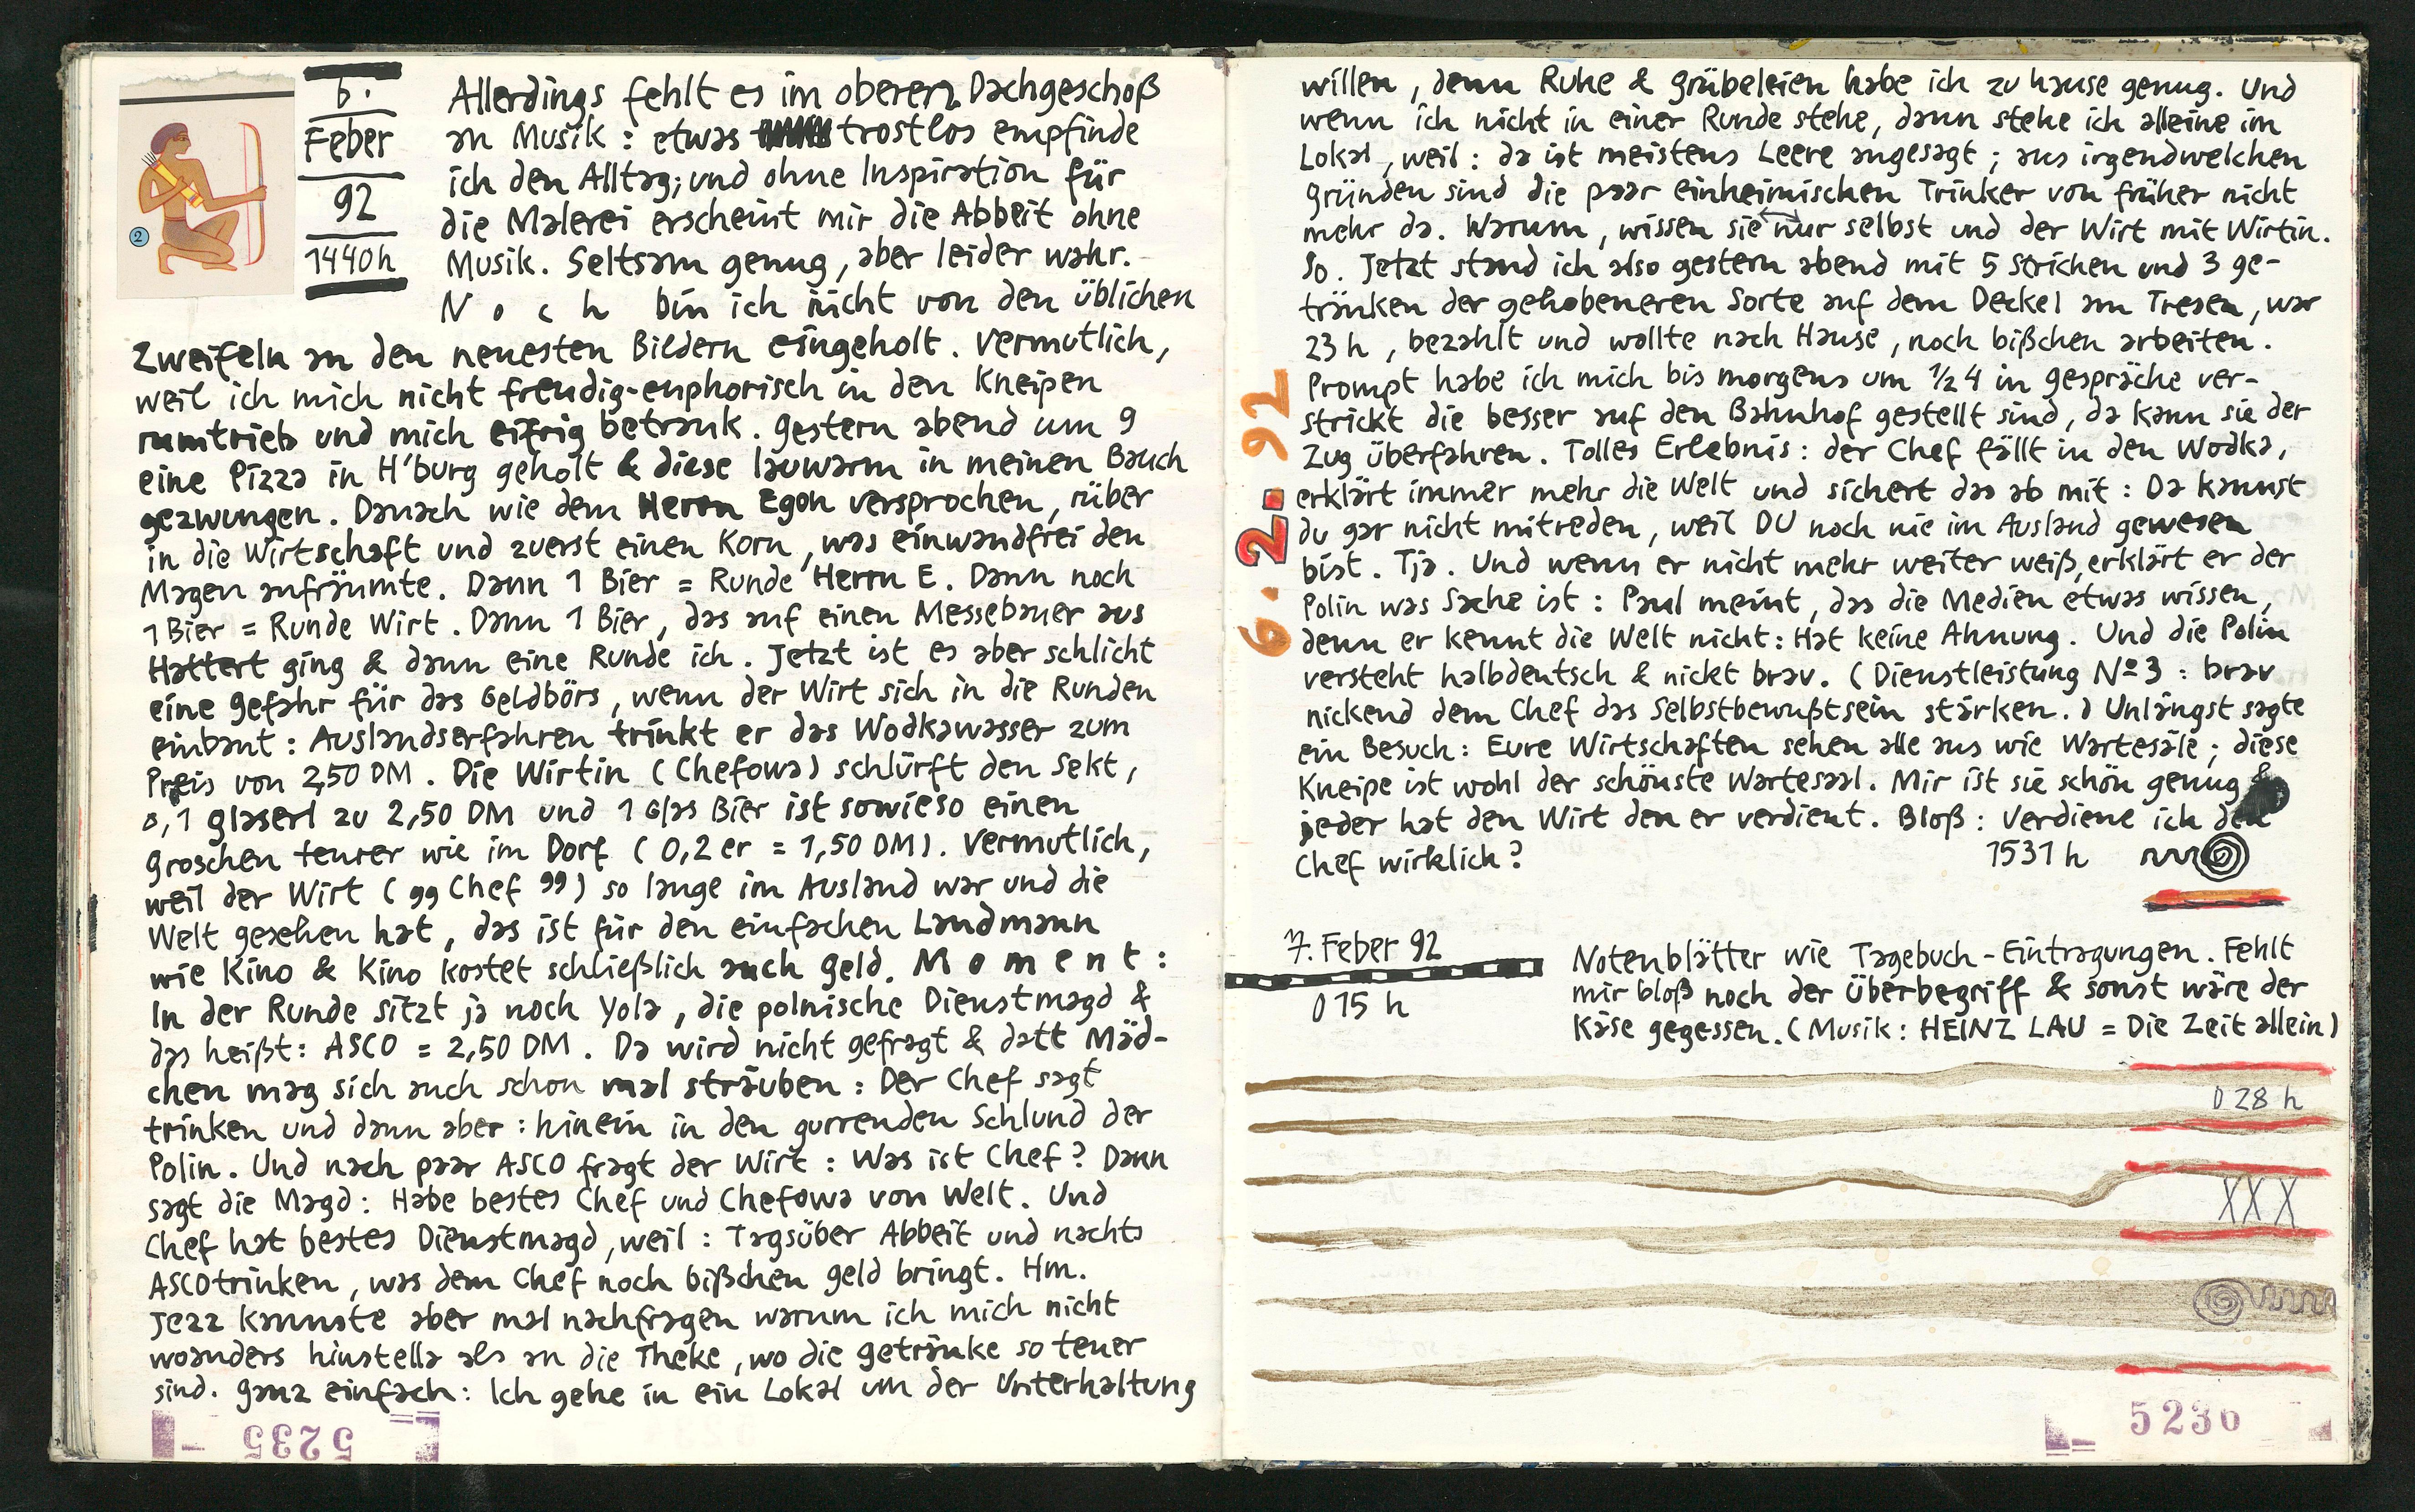 6.
Feber
92
1440h
2
Allerdings fehlt es im oberen Dachgeschoß
an Musik : etwas trostlos empfinde
ich den Alltag; und ohne Inspiration für
die Malerei erscheint mir die Abbeit ohne
Musik. Seltsam genug, aber leider wahr.
Noch bin ich nicht von den üblichen
Zweifeln an den neuesten Bildern eingeholt. Vermutlich,
weil ich mich nicht freudig-euphorisch in den Kneipen
rumtrieb und mich eifrig betrank. Gestern abend um 9
eine Pizza in H'burg geholt & diese lauwarm in meinen Bauch
gezwungen. Danach wie dem Herrn Egon versprochen, rüber
in die Wirtschaft und zuerst einen Korn, was einwandfrei den
Magen aufräumte. Dann 1 Bier = Runde Herrn E. Dann noch
1 Bier = Runde Wirt. Dann 1 Bier, das auf einen Messebauer aus
Hattert ging & dann eine Runde ich. Jetzt ist es aber schlicht
eine Gefahr für das Geldbörs, wenn der Wirt sich in die Runden
einbaut : Auslandserfahren trinkt er das Wodkawasser zum
Preis von 2,50 DM. Die Wirtin (Chefowa) schlürft den Sekt,
0,1 Glaserl zu 2,50 DM und 1 Glas Bier ist sowieso einen
Groschen teurer wie im Dorf (0,2 er = 1,50 DM). Vermutlich,
weil der Wirt („Chef") so lange im Ausland war und die
Welt gesehen hat, das ist für den einfachen Landmann
wie Kino & Kino kostet schließlich auch Geld. Moment :
In der Runde sitzt ja noch Yola, die polnische Dienstmagd &
das heißt: ASCO = 2,50 DM. Da wird nicht gefragt & datt Mäd-
chen mag sich auch schon mal sträuben : Der Chef sagt
trinken und dann aber : hinein in den gurrenden Schlund der
Polin. Und nach paar ASCO fragt der Wirt : Was ist Chef? Dann
sagt die Magd : Habe bestes Chef und Chefowa von Welt. Und
Chef hat bestes Dienstmagd, weil : Tagsüber Abbeit und nachts
ASCOtrinken, was dem Chef noch bißchen Geld bringt. Hm.
Jezz kannste aber mal nachfragen warum ich mich nicht
woanders hinstella als an die Theke, wo die Getränke so teuer
sind. Ganz einfach : Ich gehe in ein Lokal um der Unterhaltung
5235
willen, denn Ruhe & Grübeleien habe ich zu hause genug. Und
wenn ich nicht in einer Runde stehe, dann stehe ich alleine im
Lokal, weil : da ist meistens Leere angesagt ; aus irgendwelchen
Gründen sind die paar einheimischen Trinker von früher nicht
mehr da. Warum, wissen sie nur selbst und der Wirt mit Wirtin.
So. Jetzt stand ich also gestern abend mit 5 Strichen und 3 Ge-
tränken der gehobeneren Sorte auf dem Deckel am Tresen, war
23 h, bezahlt und wollte nach Hause, noch bißchen arbeiten.
Prompt habe ich mich bis morgens um ½ 4 in Gespräche ver-
strickt die besser auf den Bahnhof gestellt sind, da kann sie der
Zug überfahren. Tolles Erlebnis : der Chef fällt in den Wodka,
erklärt immer mehr die Welt und sichert das ab mit : Da kannst
du gar nicht mitreden, weil DU noch nie im Ausland gewesen
bist. Tja. Und wenn er nicht mehr weiter weiß, erklärt er der
Polin was Sache ist : Paul meint, das die Medien etwas wissen,
denn er kennt die Welt nicht : Hat keine Ahnung. Und die Polin
versteht halbdeutsch & nickt brav. (Dienstleistung Nº 3 : brav
nickend dem Chef das Selbstbewußtsein stärken.) Unlängst sagte
ein Besuch : Eure Wirtschaften sehen alle aus wie Wartesäle ; diese
Kneipe ist wohl der schönste Wartesaal. Mir ist sie schön genug &
jeder hat den Wirt den er verdient. Bloß : Verdiene ich den
Chef wirklich? 1531 h
6.2.92
7. Feber 92
015 h
Notenblätter wie Tagebuch-Eintragungen. Fehlt
mir bloß noch der Überbegriff & sonst wäre der
Käse gegessen. (Musik : HEINZ LAU = Die Zeit allein)
028 h
XXX
5236